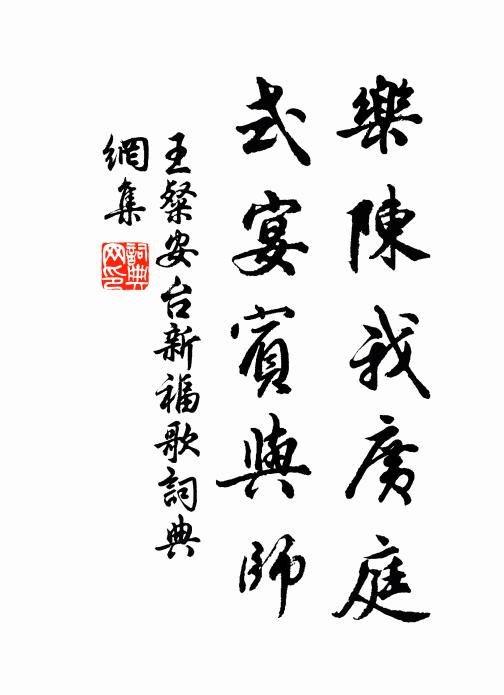 樂陳我廣庭
式宴賓與師
王粲安台新福歌詞典
網集
詞典網印